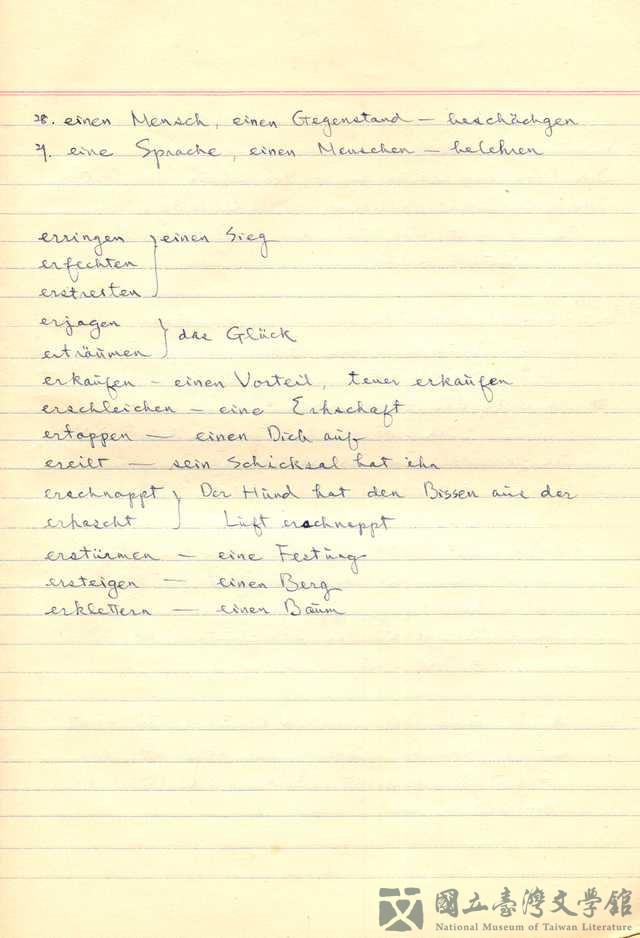 28. einen Mensch, einen Gegenstand — beschächgen
29. eine Sprache, einen Menschen — belehren
erringen } einen Sieg
erfechten
erstreiten
erjagen } das Glück
erträumen
erkaufen — einen Vorteil, teuer erkaufen
erschleichen — eine Erbschaft
ertappen — einen Dieb auf
ereilt — sein Schicksal hat ihn
erschnappt } Der Hund hat den Bissen aus der
erhascht Luft erschnappt
erstürmen — eine Festung
ersteigen — einen Berg
erklettern — einen Baum
國立臺灣文學館
National Museum of Taiwan Literature